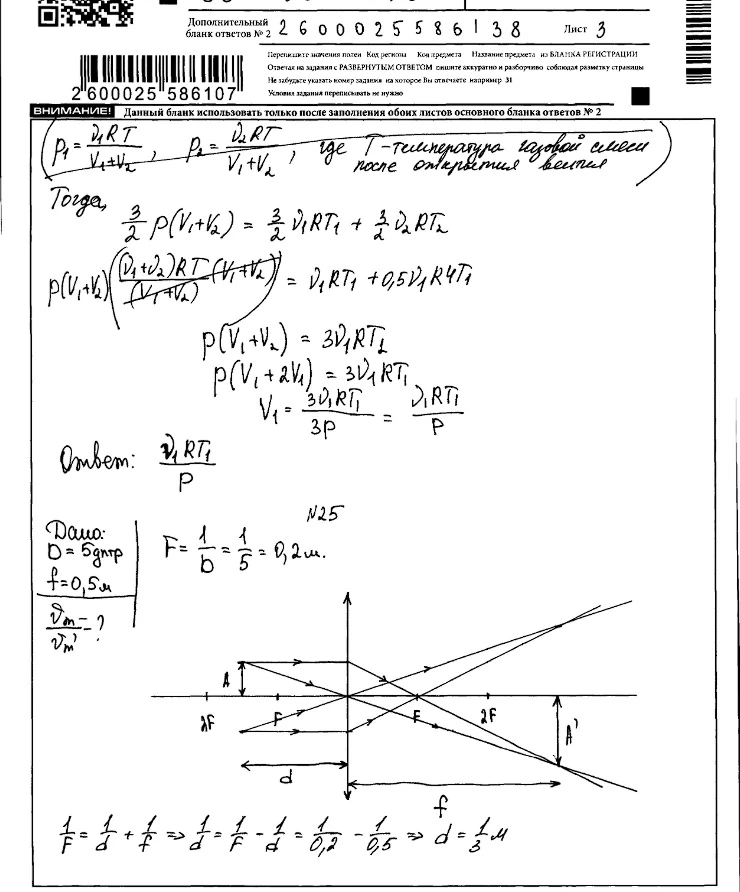 Дополнительный бланк ответов № 2 2600025586138 Лист 3
Перепишите значения полей Код региона Код предмета Название предмета из БЛАНКА РЕГИСТРАЦИИ
Отвечая на задания с РАЗВЕРНУТЫМ ОТВЕТОМ пишите аккуратно и разборчиво соблюдая разметку страницы
Не забудьте указать номер задания на которое Вы отвечаете например 31
Условия задания переписывать не нужно
2 600025 586107
ВНИМАНИЕ! Данный бланк использовать только после заполнения обоих листов основного бланка ответов № 2
(p₁ = ν₁RT/(V₁+V₂), p₂ = ν₂RT/(V₁+V₂), где T-температура газовой смеси
после открытия вентия)
Тогда,
3/2 p(V₁+V₂) = 3/2 ν₁RT₁ + 3/2 ν₂RT₂
p(V₁+V₂) ((ν₁+ν₂)RT/(V₁+V₂) (V₁+V₂)) = ν₁RT₁ + 0,5ν₁R4T₁
p(V₁+V₂) = 3ν₁RT₁
p(V₁+2V₁) = 3ν₁RT₁
V₁ = 3ν₁RT₁/3p = ν₁RT₁/p
Ответ: ν₁RT₁/p
N25
Дано:
D = 5дптр
f = 0,5м
v_m/v_m' = ?
F = 1/D = 1/5 = 0,2м.
A
2F F F 2F
A'
d
f
1/F = 1/d + 1/f => 1/d = 1/F - 1/d = 1/0,2 - 1/0,5 => d = 1/3 м